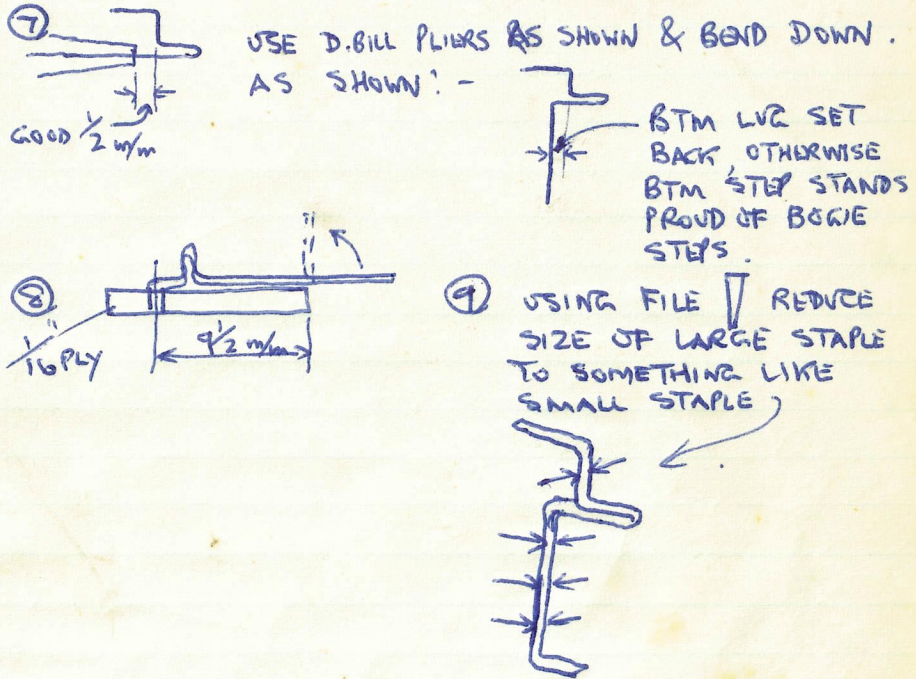 7
USE D.BILL PLIERS AS SHOWN & BEND DOWN.
AS SHOWN:-
GOOD 1/2 m/m
BTM LUG SET
BACK, OTHERWISE
BTM STEP STANDS
PROUD OF BOGIE
STEPS.
8
1/16" PLY
9 1/2 m/m
9 USING FILE REDUCE
SIZE OF LARGE STAPLE
TO SOMETHING LIKE
SMALL STAPLE